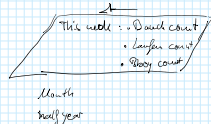 This week : • Band count
• Laufen count
• Body count
Month
half year